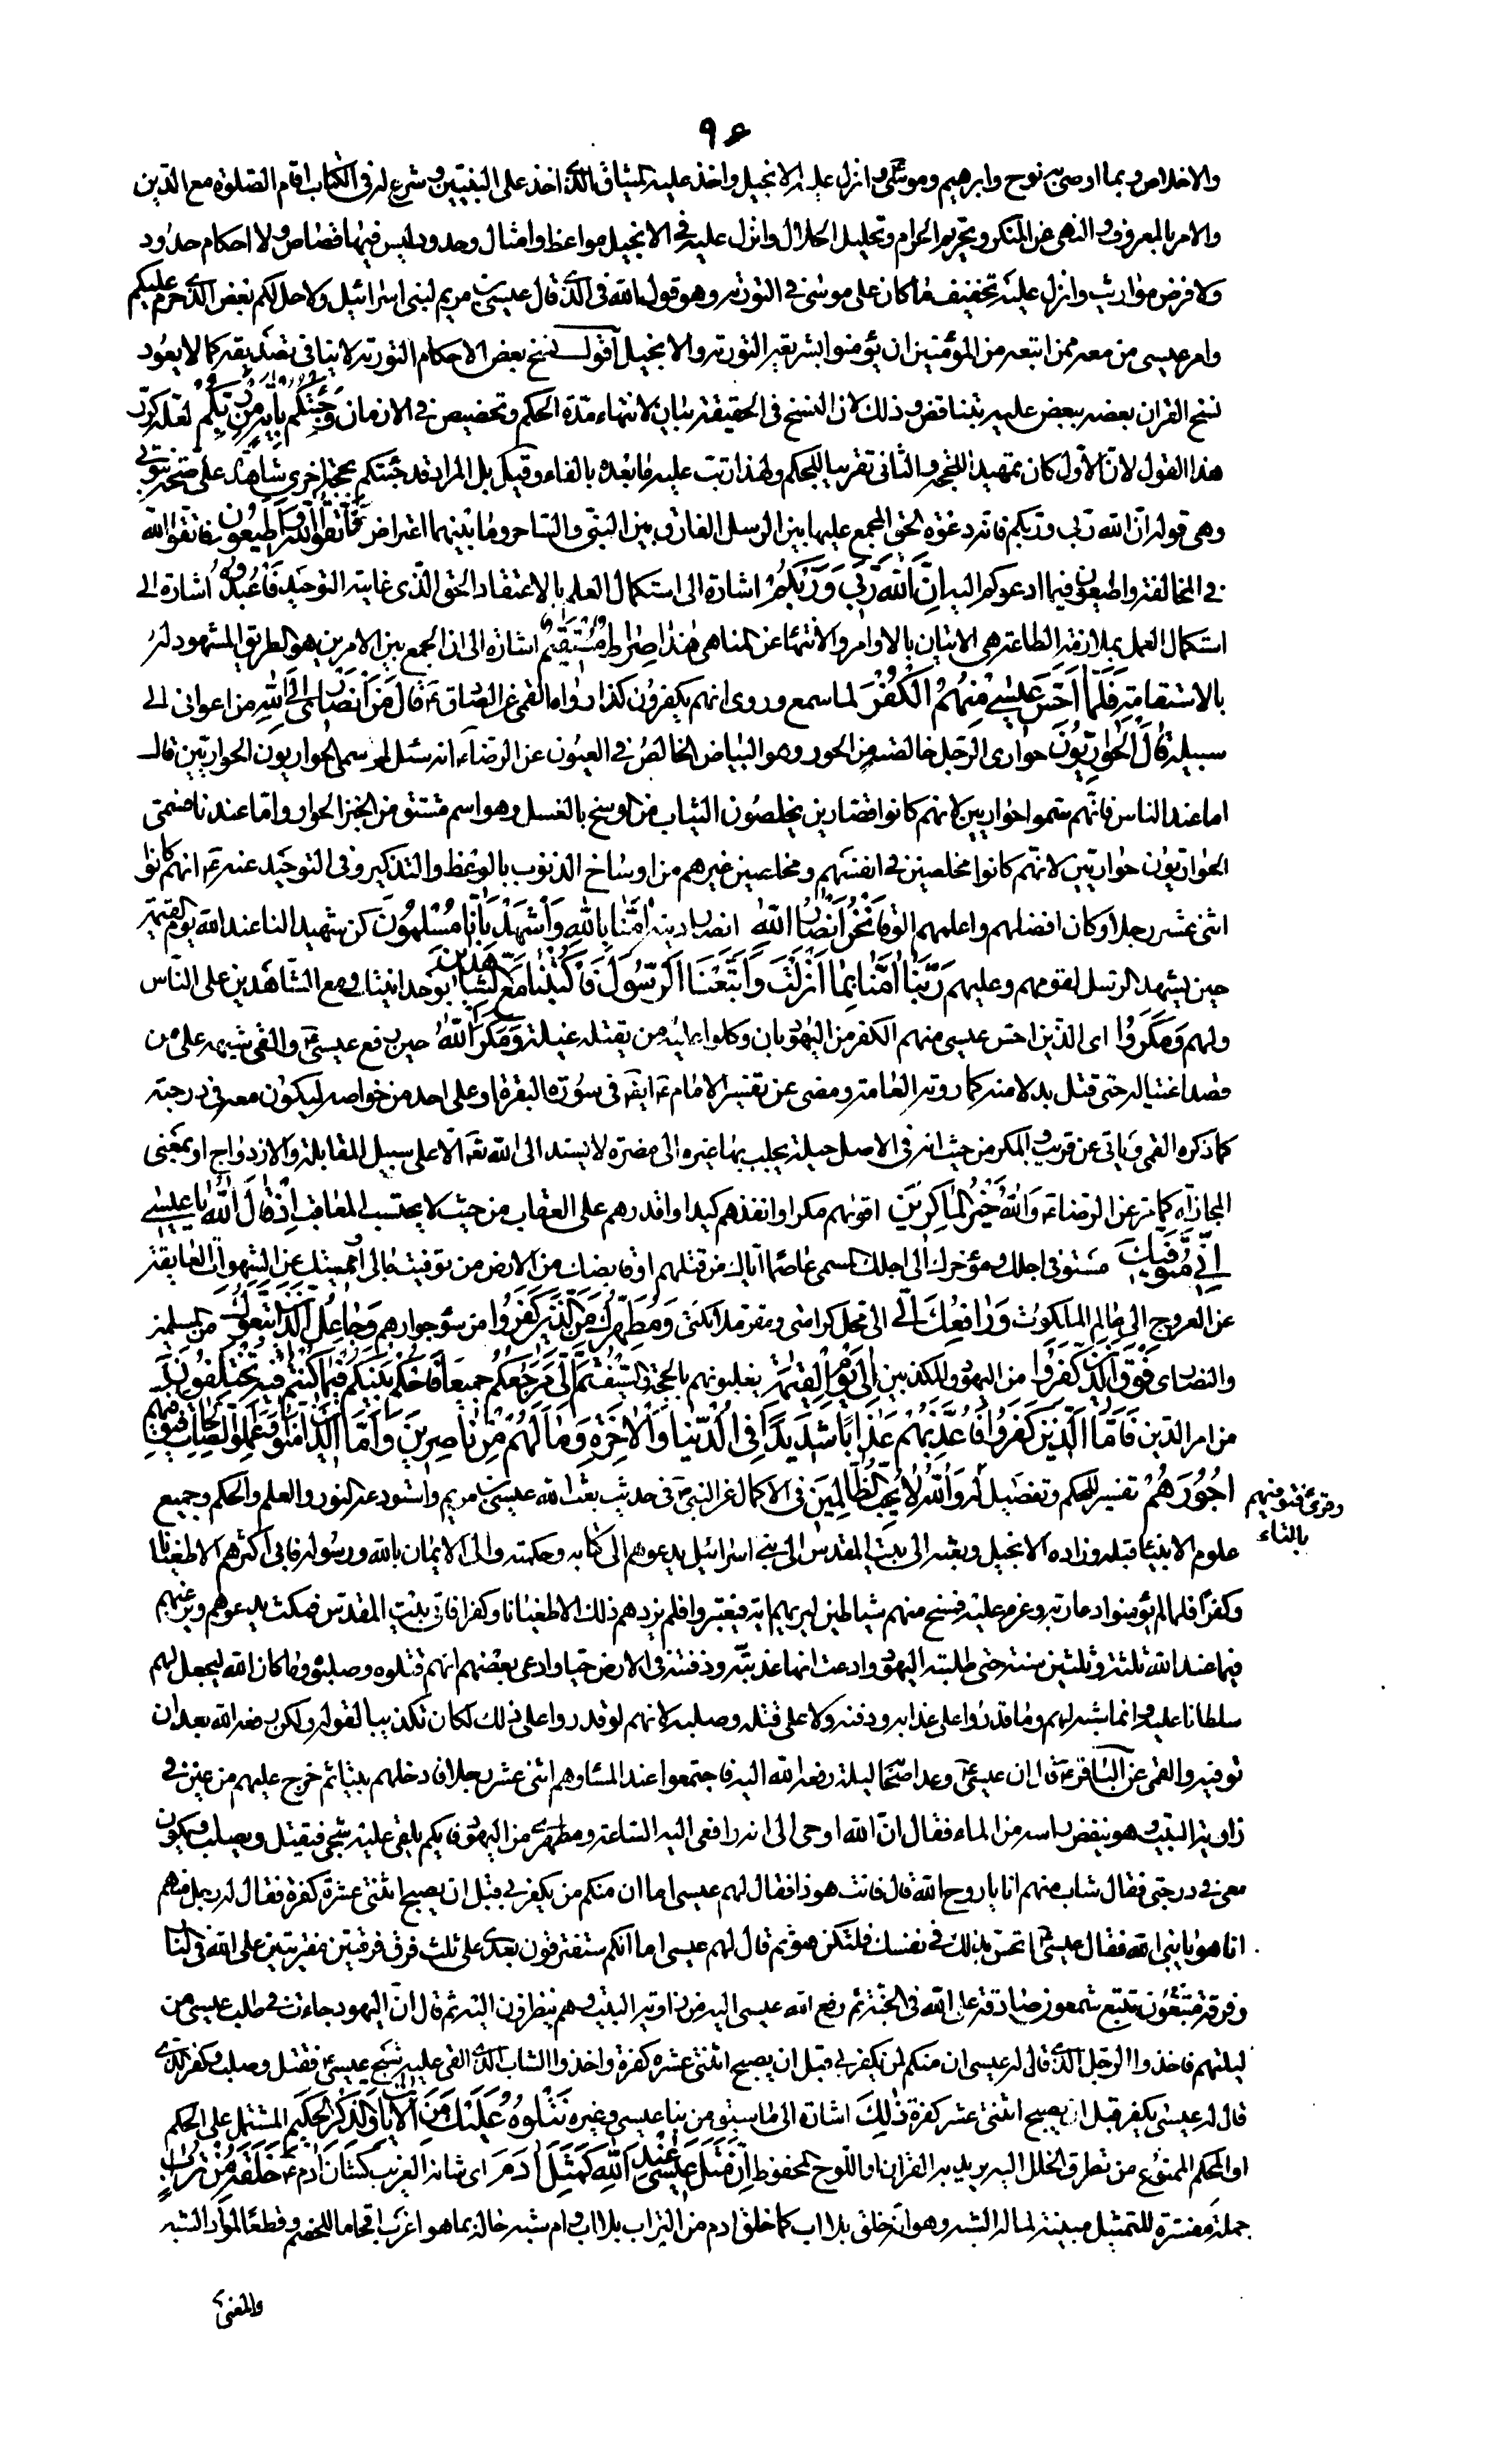 ٩۶
والاخلاص و بما اوصی به نوح وابرهیم وموسی وانزل علیه الانجیل واخذ علیه المیثاق الذی اخذ علی النبیین و شرع له فی الکتاب اقام الصلوة مع الدین
والامر بالمعروف و النهی عن المنکر وتحریم الحرام وتحلیل الحلال وانزل علیه فی الانجیل مواعظ وامثال وحدود لیس فیها قصاص ولا احکام حدود
ولا فرض مواریث وانزل علیه تخفیف ما کان علی موسی فی التوریة وهو قول الله فی الذی قال عیسی بن مریم لبنی اسرائیل ولاحل لکم بعض الذی حرم علیکم
وامر عیسی من معه ممن اتبعه من المؤمنین ان یؤمنوا بشریعة التوریة والانجیل اقول نسخ بعض الاحکام التوریة لا ینافی تصدیقه کما لا یعود
نسخ القران بعضه ببعض علیه بتناقض و ذلک لان النسخ فی الحقیقة بیان لانتهاء مدة الحکم وتخصیص فی الازمان وَجِئْتُکُمْ بِاٰیَةٍ مِنْ رَبِّکُمْ لعله کرر
هذا القول لان الاول کان تمهیدا للحجة والثانی تقریبا للحکم ولهذا رتب علیه ما بعده بالفاء وقیل بل المراد قد جئتکم بحجة اخری شاهدة علی صحة نبوتی
وهی قوله ان الله ربی وربکم فانه دعوة الحق المجمع علیها بین الرسل الفارق بین النبی والساحر وما بینهما اعتراض فَاتَّقُوا اللهَ وَاَطِیعُونِ فاتقوا الله
فی المخالفة واطیعون فیما ادعوکم الیه اِنَّ اللهَ رَبِّی وَرَبُّکُمْ اشارة الی استکمال العلم بالاعتقاد الحق الذی غایته التوحید فَاعْبُدُوهُ اشارة الی
استکمال العمل بملازمة الطاعة هی الاتیان بالاوامر والانتهاء عن المناهی هٰذَا صِرَاطٌ مُسْتَقِیمٌ اشارة الی ان الجمع بین الامرین هو الطریق المشهود له
بالاستقامة فَلَمَّا اَحَسَّ عِیسٰی مِنْهُمُ الْکُفْرَ لما سمع وروی انهم یکفرون کذا رواه القمی عن الصادق ع قَالَ مَنْ اَنْصَارِی اِلَی اللهِ من اعوانی الی
سبیله قَالَ الْحَوَارِیُّونَ حواری الرجل خالصته من الحور وهو البیاض الخالص فی العیون عن الرضا ع انه سئل لم سمی الحواریون الحواریین قال
اما عند الناس فانهم سموا حواریین لانهم کانوا قصارین یخلصون الثیاب من الوسخ بالغسل وهو اسم مشتق من الخبز الحوار واما عندنا فسمی
الحواریون حواریین لانهم کانوا مخلصین فی انفسهم ومخلصین غیرهم من اوساخ الذنوب بالوعظ والتذکیر وفی التوحید عنه ع انهم کانوا
اثنی عشر رجلا وکان افضلهم واعلمهم الوقا نَحْنُ اَنْصَارُ اللهِ انصار دینه اٰمَنَّا بِاللهِ وَاشْهَدْ بِاَنَّا مُسْلِمُونَ کن شهیدا لنا عند الله یوم القیمة
حین یشهد الرسل لقومهم وعلیهم رَبَّنَا اٰمَنَّا بِمَا اَنْزَلْتَ وَاتَّبَعْنَا الرَّسُولَ فَاکْتُبْنَا مَعَ الشَّاهِدِینَ بوحدانیتک او مع الشاهدین علی الناس
ولهم وَمَکَرُوا ای الذین احس عیسی منهم الکفر من الیهود بان وکلوا علیه من یقتله غیلة وَمَکَرَ اللهُ حین رفع عیسی ع والقی شبهه علی من
قصد اغتیاله حتی قتل بدلا منه کما روته العامة ومضی عن تفسیر الامام ع ایضا فی سورة البقرة او علی احد من خواصه لیکون معه فی درجته
کما ذکره القمی ویاتی عن قریب والمکر من حیث انه فی الاصل حیلة یجلب بها غیره الی مضرة لا یسند الی الله تعالی الا علی سبیل المقابلة والازدواج او بمعنی
المجازاة کما مر عن الرضا ع وَاللهُ خَیْرُ الْمَاکِرِینَ اقویهم مکرا وانفذهم کیدا واقدرهم علی العقاب من حیث لا یحتسب المعاقب اِذْ قَالَ اللهُ یَا عِیسٰی
اِنِّی مُتَوَفِّیکَ مستوفی اجلک ومؤخرک الی اجلک المسمی عاصما ایاک من قتلهم او قابضک من الارض من توفیت مالی او ممیتک عن الشهوات العایقة
عن العروج الی عالم الملکوت وَرَافِعُکَ اِلَیَّ الی محل کرامتی ومقر ملائکتی وَمُطَهِّرُکَ مِنَ الَّذِینَ کَفَرُوا من سوء جوارهم وَجَاعِلُ الَّذِینَ اتَّبَعُوکَ من المسلمین
والنصاری فَوْقَ الَّذِینَ کَفَرُوا من الیهود والمکذبین اِلٰی یَوْمِ الْقِیٰمَةِ یغلبونهم بالحجة والسیف ثُمَّ اِلَیَّ مَرْجِعُکُمْ جمیعا فَاَحْکُمُ بَیْنَکُمْ فِیمَا کُنْتُمْ فِیهِ تَخْتَلِفُونَ
من امر الدین فَاَمَّا الَّذِینَ کَفَرُوا فَاُعَذِّبُهُمْ عَذَابًا شَدِیدًا فِی الدُّنْیَا وَالْاٰخِرَةِ وَمَا لَهُمْ مِنْ نَاصِرِینَ وَاَمَّا الَّذِینَ اٰمَنُوا وَعَمِلُوا الصَّالِحَاتِ فَیُوَفِّیهِمْ
اُجُورَهُمْ تفسیر للحکم وتفصیل له وَاللهُ لَا یُحِبُّ الظَّالِمِینَ فی الاکمال عن النبی ص فی حدیث بعث الله عیسی بن مریم واستودعه النور والعلم والحکم وجمیع
وقرئ فنوفیهم
بالتاء
علوم الانبیاء قبله وزاده الانجیل وبعثه الی بیت المقدس الی بنی اسرائیل یدعوهم الی کتابه وحکمته والی الایمان بالله ورسوله فابی اکثرهم الا طغیانا
وکفرا فلما لم یؤمنوا دعا ربه وعزم علیه فمسخ منهم شیاطین لیریهم ایة فیعتبروا فلم یزدهم ذلک الا طغیانا وکفرا فاتی بیت المقدس فمکث یدعوهم ویرغبهم
فیما عند الله ثلثة وثلثین سنة حتی طلبته الیهود وادعت انها عذبته ودفنته فی الارض حیا وادعی بعضهم انهم قتلوه وصلبوه وما کان الله لیجعل لهم
سلطانا علیه وانما شبه لهم وما قدروا علی عذابه ودفنه ولا علی قتله وصلبه لانهم لو قدروا علی ذلک لکان تکذیبا لقوله ولکن رفعه الله بعد ان
توفیه والقمی عن الباقر ع قال ان عیسی ع وعد اصحابه لیلة رفعه الله الیه فاجتمعوا عند المساء وهم اثنی عشر رجلا فادخلهم بیتا ثم خرج علیهم من عین فی
زاویة البیت وهو ینفض راسه من الماء فقال ان الله اوحی الی انه رافعی الیه الساعة ومطهری من الیهود فایکم یلقی علیه شبحی فیقتل ویصلب ویکون
معی فی درجتی فقال شاب منهم انا یا روح الله قال فانت هوذا فقال لهم عیسی اما ان منکم من یکفر بی قبل ان یصبح اثنتی عشرة کفرة فقال له رجل منهم
انا هو یا نبی الله فقال عیسی ع اتحس بذلک فی نفسک فلتکن هو ثم قال لهم عیسی اما انکم ستفترقون بعدی علی ثلث فرق فرقتین مفتریتین علی الله فی النار
وفرقة تتبع شمعون صادقة علی الله فی الجنة ثم رفع الله عیسی الیه من زاویة البیت وهم ینظرون الیه ثم قال ان الیهود جاءت فی طلب عیسی من
لیلتهم فاخذوا الرجل الذی قال له عیسی ان منکم لمن یکفر بی قبل ان یصبح اثنتی عشرة کفرة واخذوا الشاب الذی القی علیه شبح عیسی ع فقتل وصلب وکفر الذی
قال له عیسی یکفر قبل ان یصبح اثنتی عشر کفرة ذٰلِکَ اشارة الی ما سبق من نبا عیسی وغیره نَتْلُوهُ عَلَیْکَ مِنَ الْاٰیَاتِ وَالذِّکْرِ الْحَکِیمِ المشتمل علی الحکم
او المحکم الممنوع من تطرق الخلل الیه یرید به القران او اللوح المحفوظ اِنَّ مَثَلَ عِیسٰی عِنْدَ اللهِ کَمَثَلِ اٰدَمَ ای شانه الغریب کشان ادم ع خَلَقَهُ مِنْ تُرَابٍ
جملة مفسرة للتمثیل مبینة لما له الشبه وهو انه خلق بلا اب کما خلق ادم من التراب بلا اب وام شبه حاله بما هو اغرب افحاما للخصم وقطعا لمواد الشبه
والمعنی